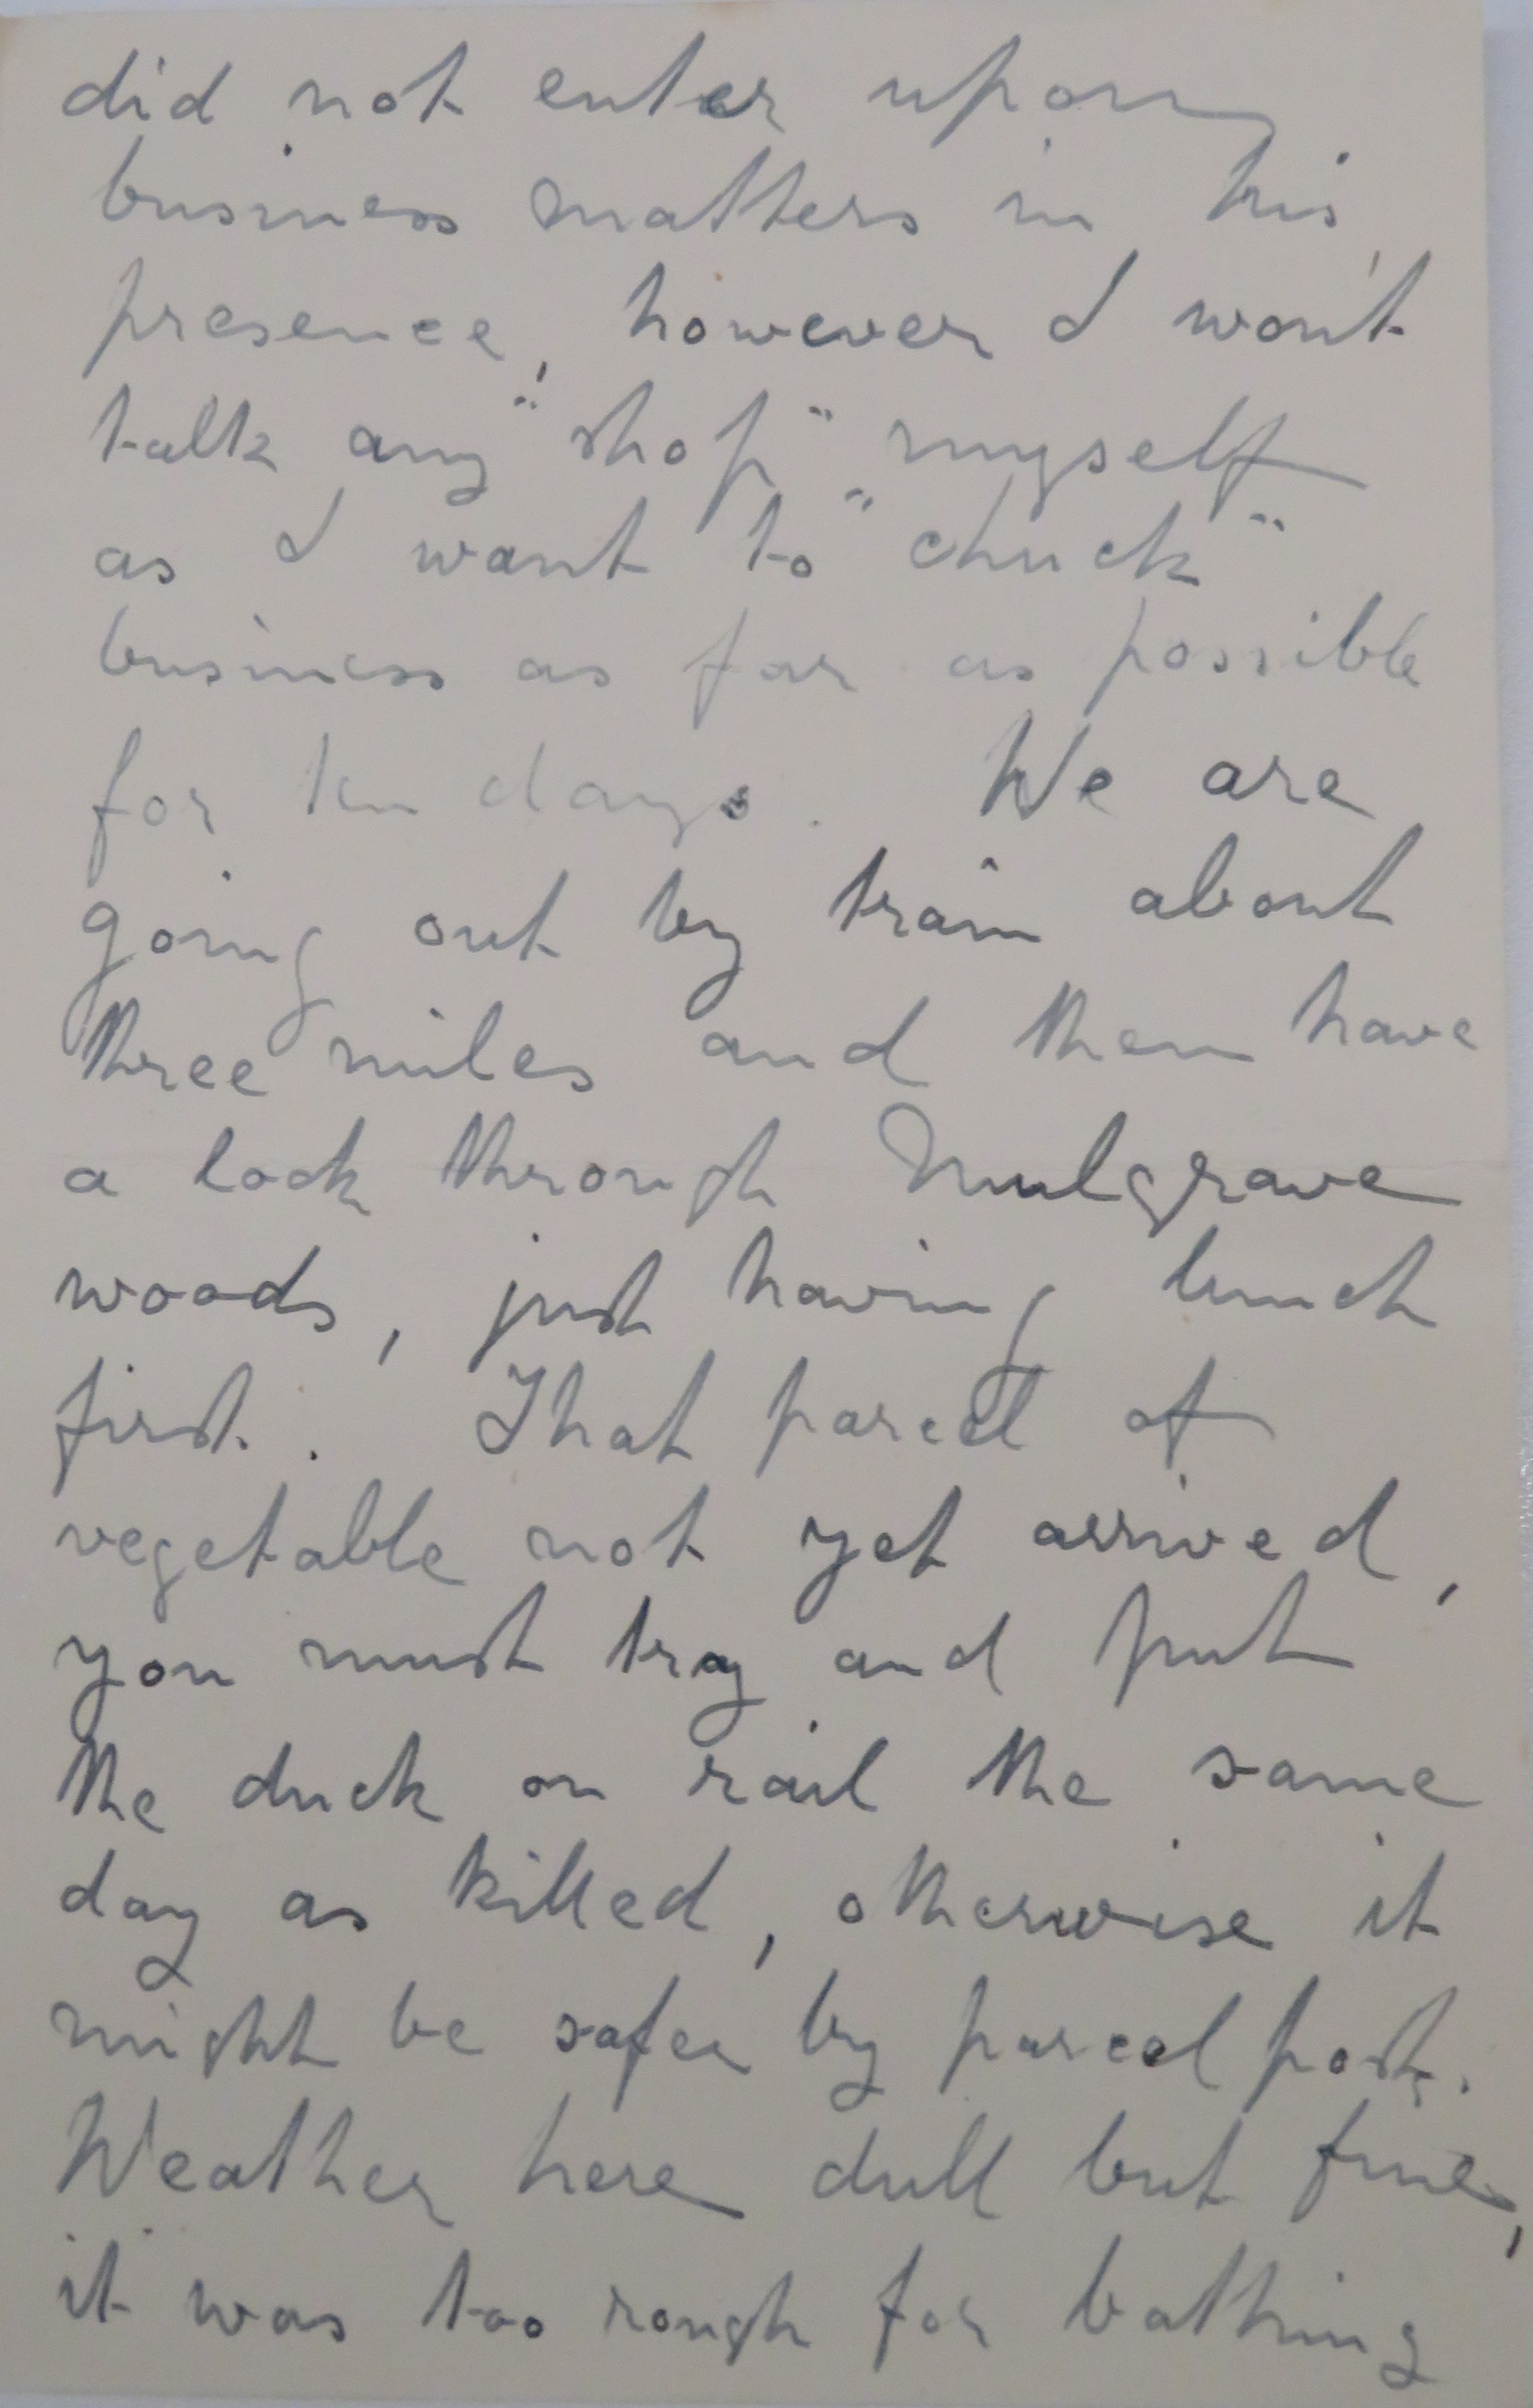 did not enter upon
business matters in his
presence, however I won't
talk any "shop" myself
as I want to "chuck"
business as far as possible
for ten days. We are
going out by train about
three miles and then have
a look through Mulgrave
woods, just having lunch
first. That parcel of
vegetable not yet arrived,
you must try and put
the duck on rail the same
day as killed, otherwise it
might be safer by parcel post.
Weather here dull but fine,
it was too rough for bathing